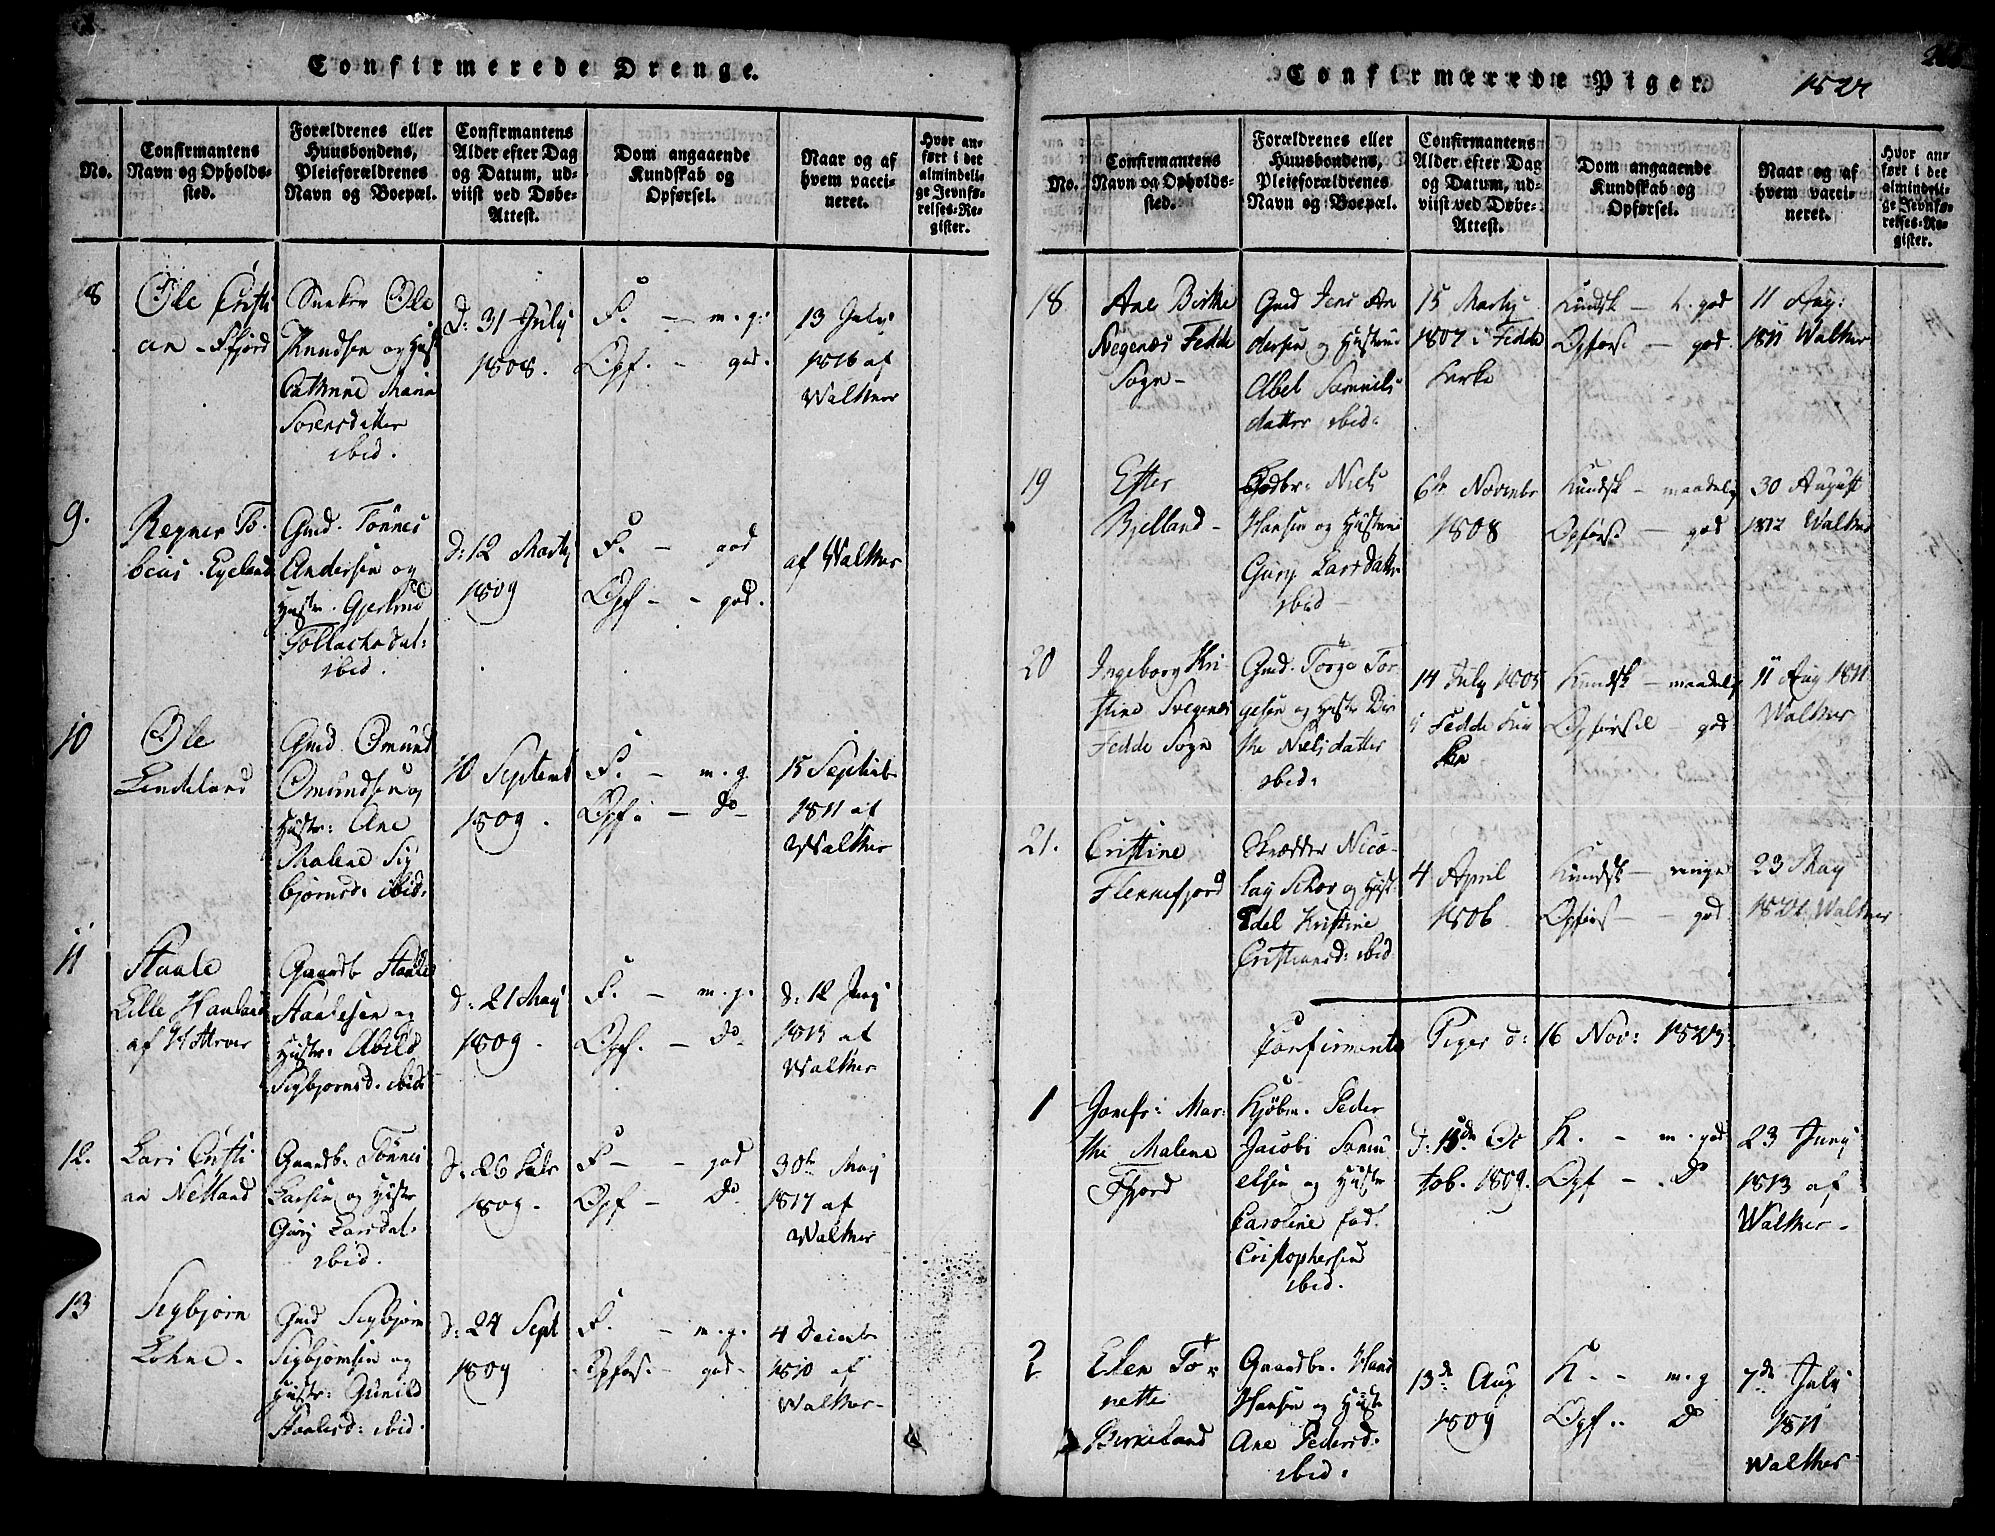 Confirmerede Drenge.
No.
Confirmantens
Navn og Opholds-
sted.
Forældrenes eller
Huusbondens,
Pleieforældrenes
Navn og Boepæl.
Confirmantens
Alder efter Dag
og Datum, ud-
viist ved Døbe-
Attest.
Dom angaaende
Kundskab og
Opførsel.
Naar og af
hvem vacci-
neret.
Hvor an-
ført i det
almindeli-
ge Jevnfø-
relses-Re-
gister.
8
Ole Cristi
an - Ffjord
Ole
Knudsen og Hust
Cathrine Maria
Sorensdatter
ibid.
d: 31 July
1808.
F. - m.g:
Opf. - god.
13 July
1816 af
Walther
9.
Regner To-
bias Egeland
Gmd. Tönnes
Andersen og
Hustr. Gjertrud
ibid.
d: 12 Martz
1809
F. - god
Opf - - god.
af Walther
10
Ole
Lindeland
Gmd. Omund
Omundsen og
Hustr: Ane
Malene Sig
bjørnsd: ibid:
10 Septemb
1809.
F. - m.g
Opf: - do
15 Septemb
1811 af
Walther
11
Staale
Lille Hauland
af
Gaardb Staale
Staalesen og
Hustr: Abild
Sigbjørnsd: ibid:
d: 21 May
1809.
F. - m.g.
Opf. - do
d: 12 Juny
1815 af
Walther
12.
Lars Cristi
an Netland
Gaardb: Tönnes
Larsen og Hustr
Gury Larsdat.
ibid.
d: 26
1809.
F - - god
Opf - do
30te May
1817 af
Walther
13
Sigbjørn
Lohne.
Gmd Sigbjørn
Sigbjørnsen og
Hustr: Gunild
Staalesd: ibid.
d: 24 Sept
1809
F. - m.g.
Opførs. - god-
4 Decemb
1810 af
Walther-
Confirmerede Piger.
No.
Confirmantens
Navn og Opholds-
sted.
Forældrenes eller
Huusbondens,
Pleieforældrenes
Navn og Boepæl.
Confirmantens
Alder efter Dag
og Datum, ud-
viist ved Døbe-
Attest.
Dom angaaende
Kundskab og
Opførsel.
Naar og af
hvem vacci-
neret.
Hvor an-
ført i det
almindeli-
ge Jevnfø-
relses-Re-
gister.
18.
Ane Birthe
Svegenæs Fedde
Sogn-
Gmd Jens An
dersen og Hustrue
Abel Samuels
datter ibid:
15 Martz
1807 i Fedde
Kirke
Kundsk - t. god
Opførsl - god
11 Aug:
1811 Walther
19
Ester
Bjelland-
Godbr: Niels
Hansen og Hustrue
Gury Larsdatter
ibid-
6te Novembr
1808
Kundsk - maadelig
Opførsl - god
30 August
1812 Walther
20
Ingeborg Kri-
stine Svegenæs
Fedde Sogn
Gmd. Törge Tor-
gesen og Hustr Bir
the Nielsdatter
ibid:
14 July 1805
i Fedde Kir
ken
Kundsk - maadelig
Opførsel - god
11 Aug 1811
Walther
21.
Cristine
Flennefjord
Skrædder Nico-
lay Schov og Hust.
Edel Kristine
Cristiansd: ibid
4 April
1806
Kundsk - ringe
Opførsl - - god
23 May
1821. Walther
Confirmante Piger d: 16 Nov: 1823.
1
Jomfr: Mar-
the Malene
Ffjord
Kjøbm. Peder
Jacobi Samu
elsen og Hustr-
Caroline fød.
Cristophersen
ibid.
d: 15de Oc
tob. 1809.
K. - m.god
Opf - . do
23 Juny
1813 af
Walther-
2
Elen Tö-
nette
Birkeland
Gaardbr. Hans
Hansen og Hustr
Ane Pedersd.
ibid.
13de Aug
1809
K. - - m.g
Opf.. do
7de July
1811
Walther